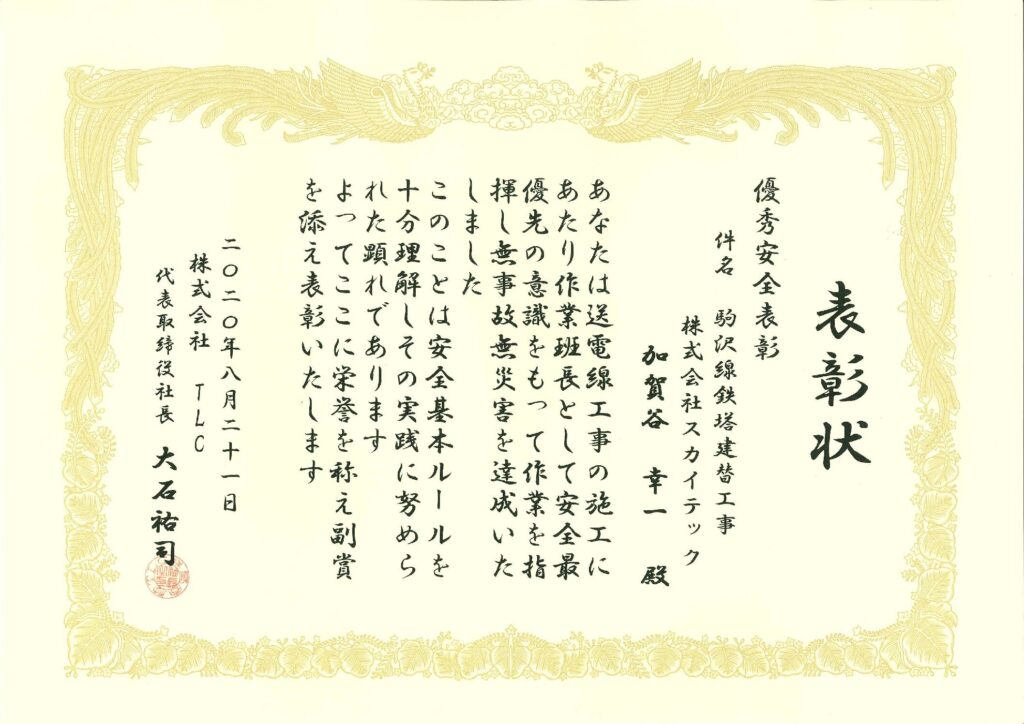 表彰状
優秀安全表彰
件名　駒沢線鉄塔建替工事
株式会社スカイテック
加賀谷　幸一　殿
あなたは送電線工事の施工に
あたり作業班長として安全最
優先の意識をもって作業を指
揮し無事故無災害を達成いた
しました
このことは安全基本ルールを
十分理解しその実践に努めら
れた顕れであります
よってここに栄誉を称え副賞
を添え表彰いたします
二〇二〇年八月二十一日
株式会社　TLC
代表取締役社長　大石祐司